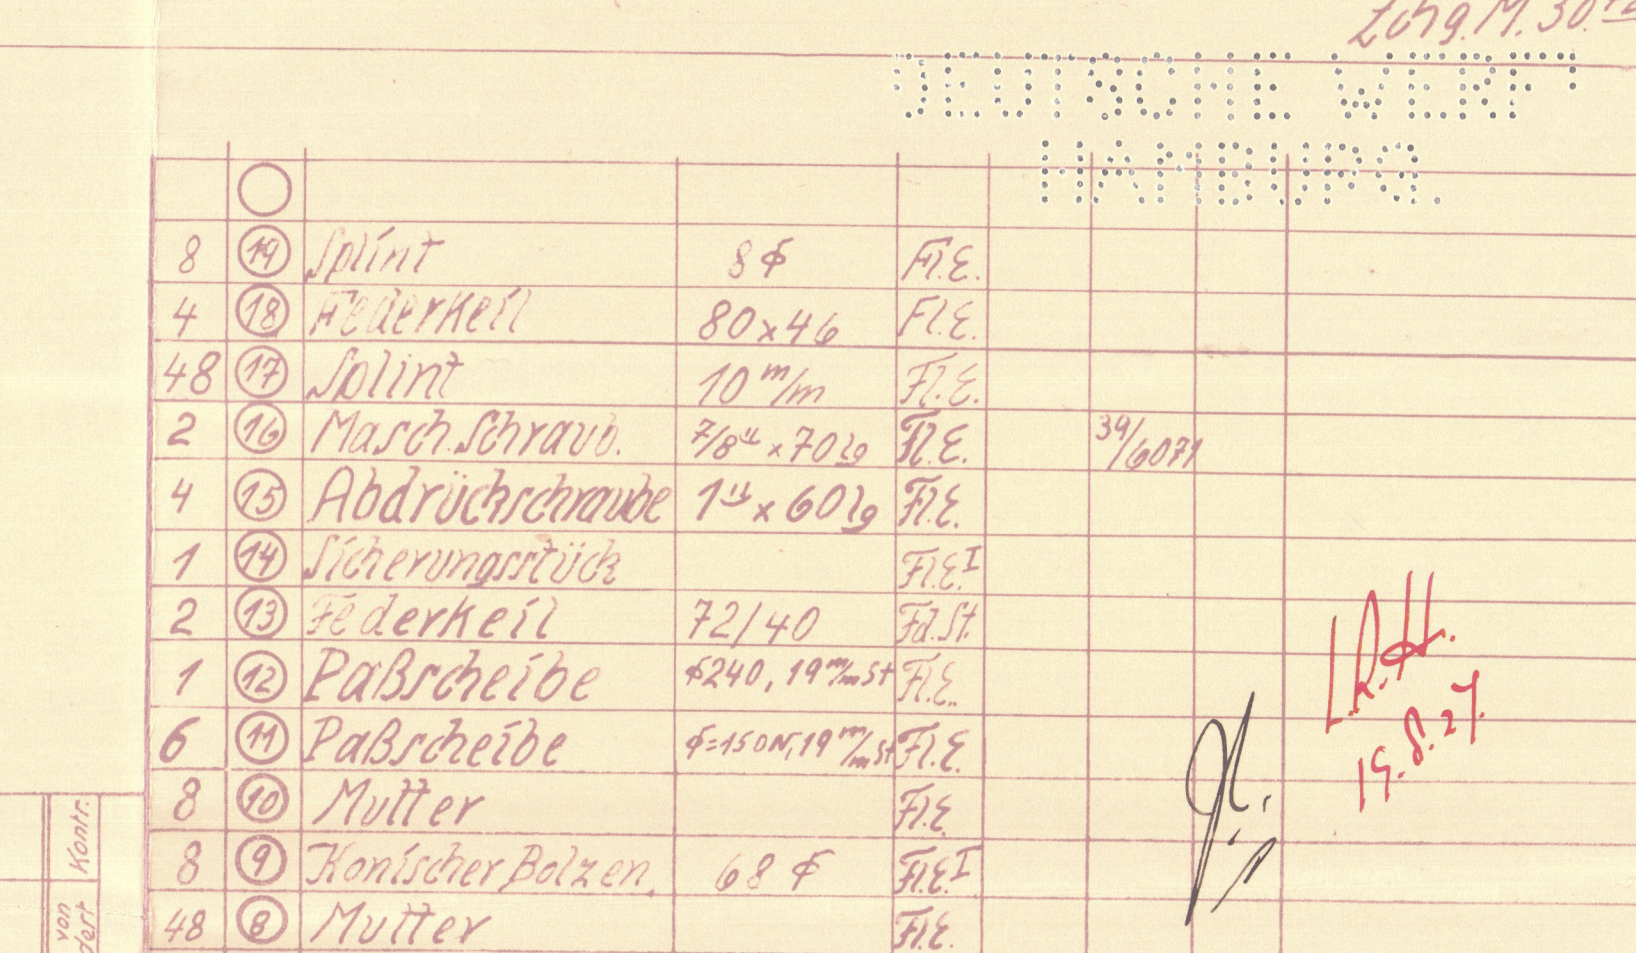 Zchg. M. 30.
DEUTSCHE WERFT
HAMBURG.
8 19 Splint 8 ϕ Fl.E.
4 18 Federkeil 80x46 Fl.E.
48 17 Splint 10 m/m Fl.E.
2 16 Masch.Schraub. 7/8" x 70 lg Fl.E. 39/6071
4 15 Abdrückschraube 1" x 60 lg Fl.E.
1 14 Sicherungsstück Fl.E.I
2 13 Federkeil 72/40 Fd.St.
1 12 Paßscheibe ϕ240, 19 m/m St Fl.E.
6 11 Paßscheibe ϕ=150N, 19 m/m St Fl.E.
8 10 Mutter Fl.E.
8 9 Konischer Bolzen. 68 ϕ Fl.E.I
48 8 Mutter Fl.E.
19.8.27.
Kontr.
von
dert